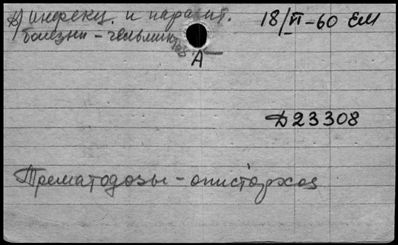 инфекц. и паразит. 18/VI-60 ЕМ
болезни - гельминтов
А
Д23308
Трематодозы - описторхоз